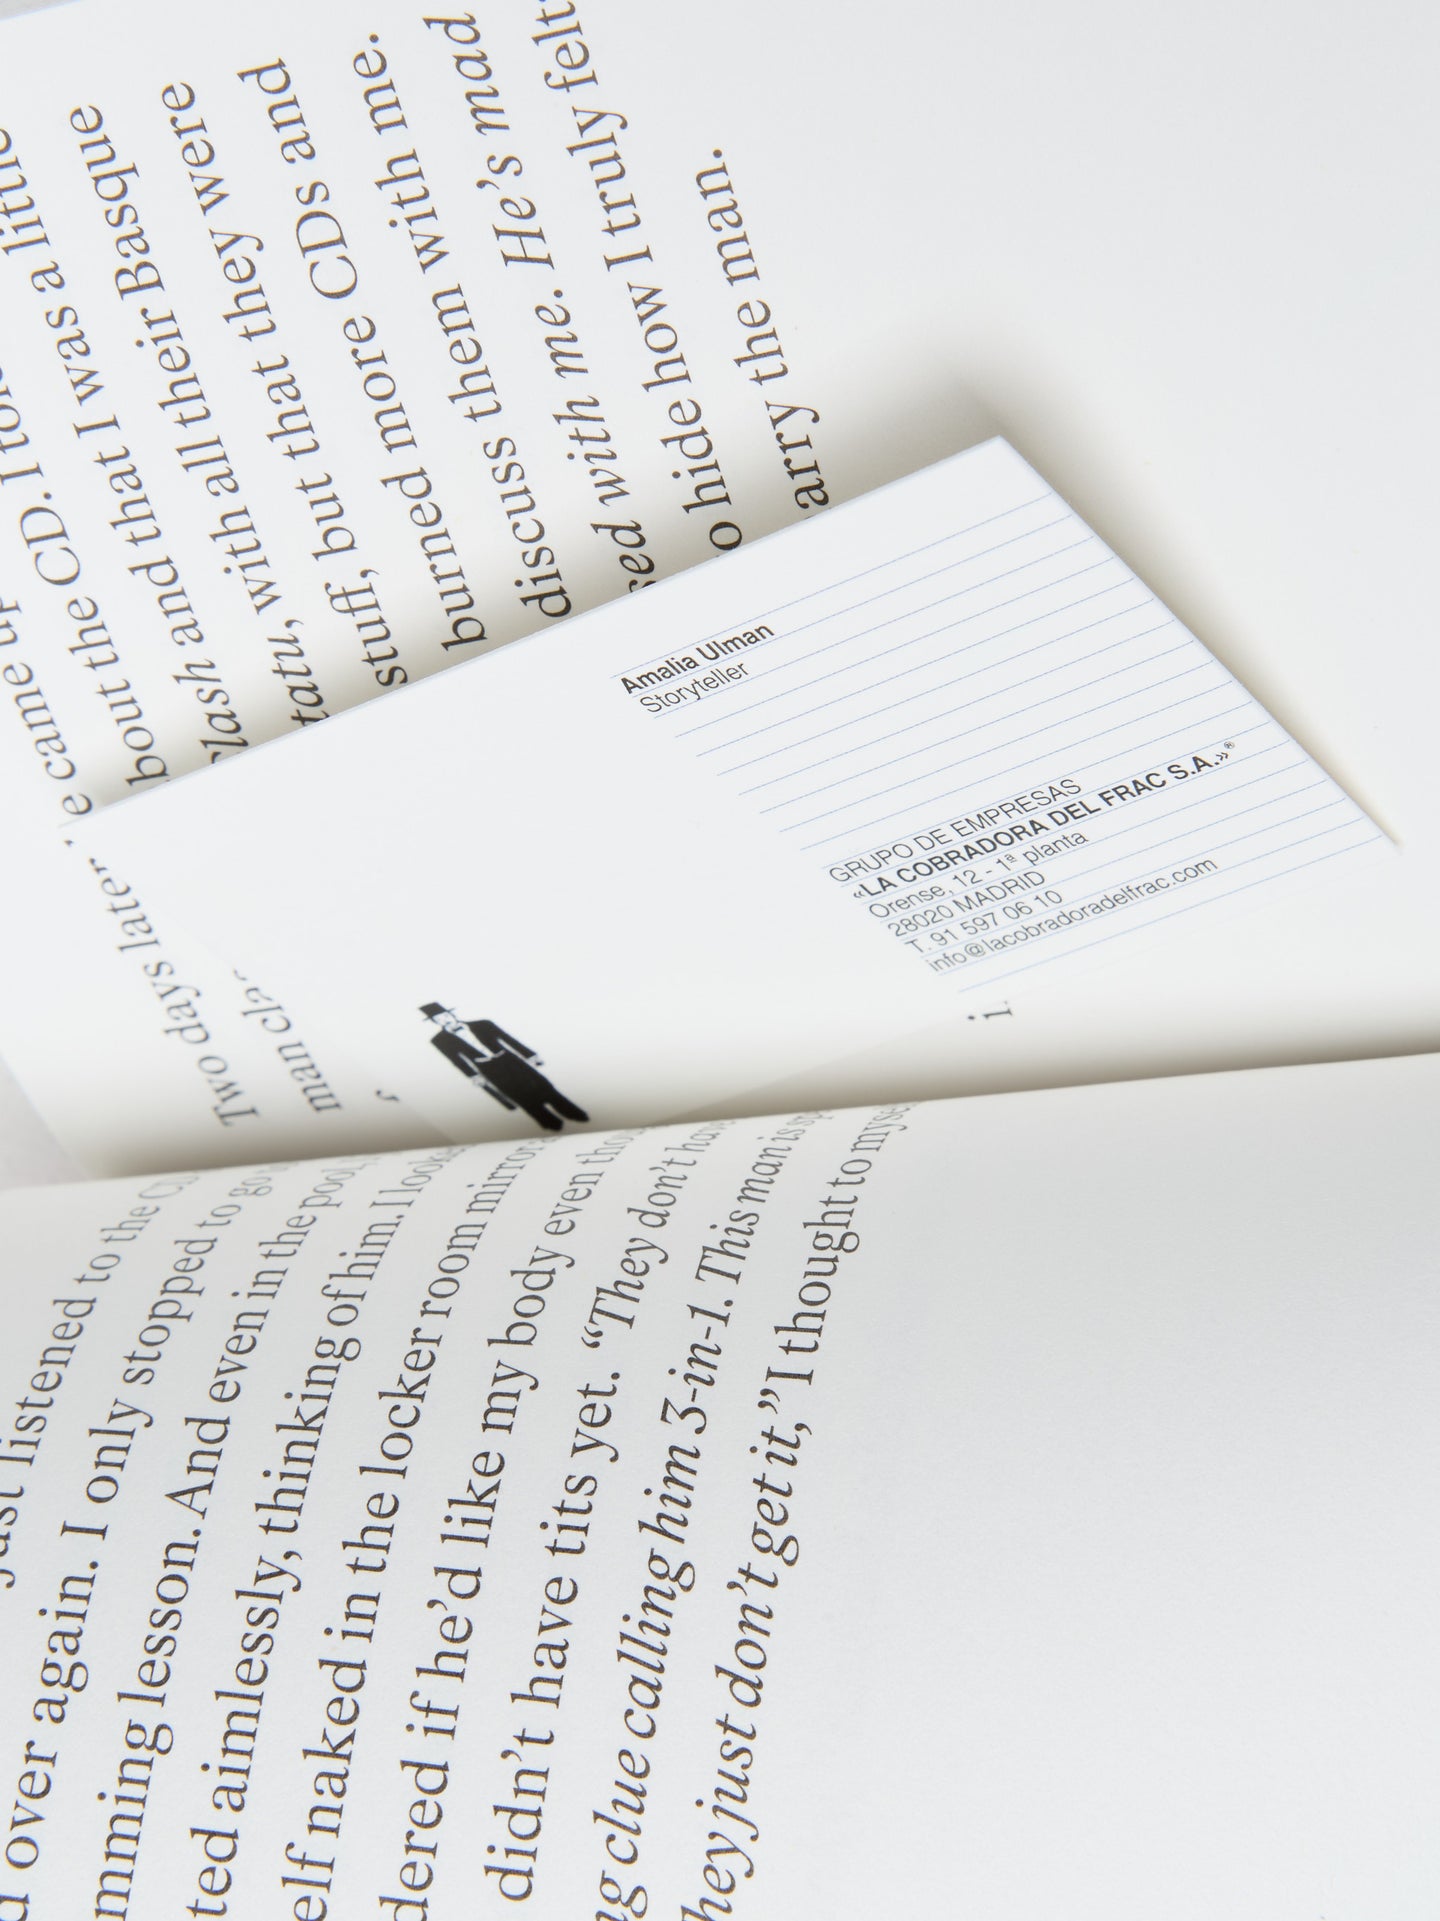 came up
bout the CD. I
lash and that I was a little
tatu, with all their Basque
stuff, but that they were
burned more CDs and
discuss them with me.
sed with me. He's mad
o hide how I truly felt:
arry the man.
Two days later
man
i.
Amalia Ulman
Storyteller
GRUPO DE EMPRESAS
«LA COBRADORA DEL FRAC S.A.»®
Orense, 12 - 1ª planta
28020 MADRID
T. 91 597 06 10
info@lacobradoradelfrac.com
just listened to the CD
d over again. I only stopped to go
mming lesson. And even in the pool,
ted aimlessly, thinking of him. I looked
elf naked in the locker room mirror
dered if he'd like my body even
didn't have tits yet. “They don't have
ng clue calling him 3-in-1. This man is
hey just don't get it,” I thought to myse